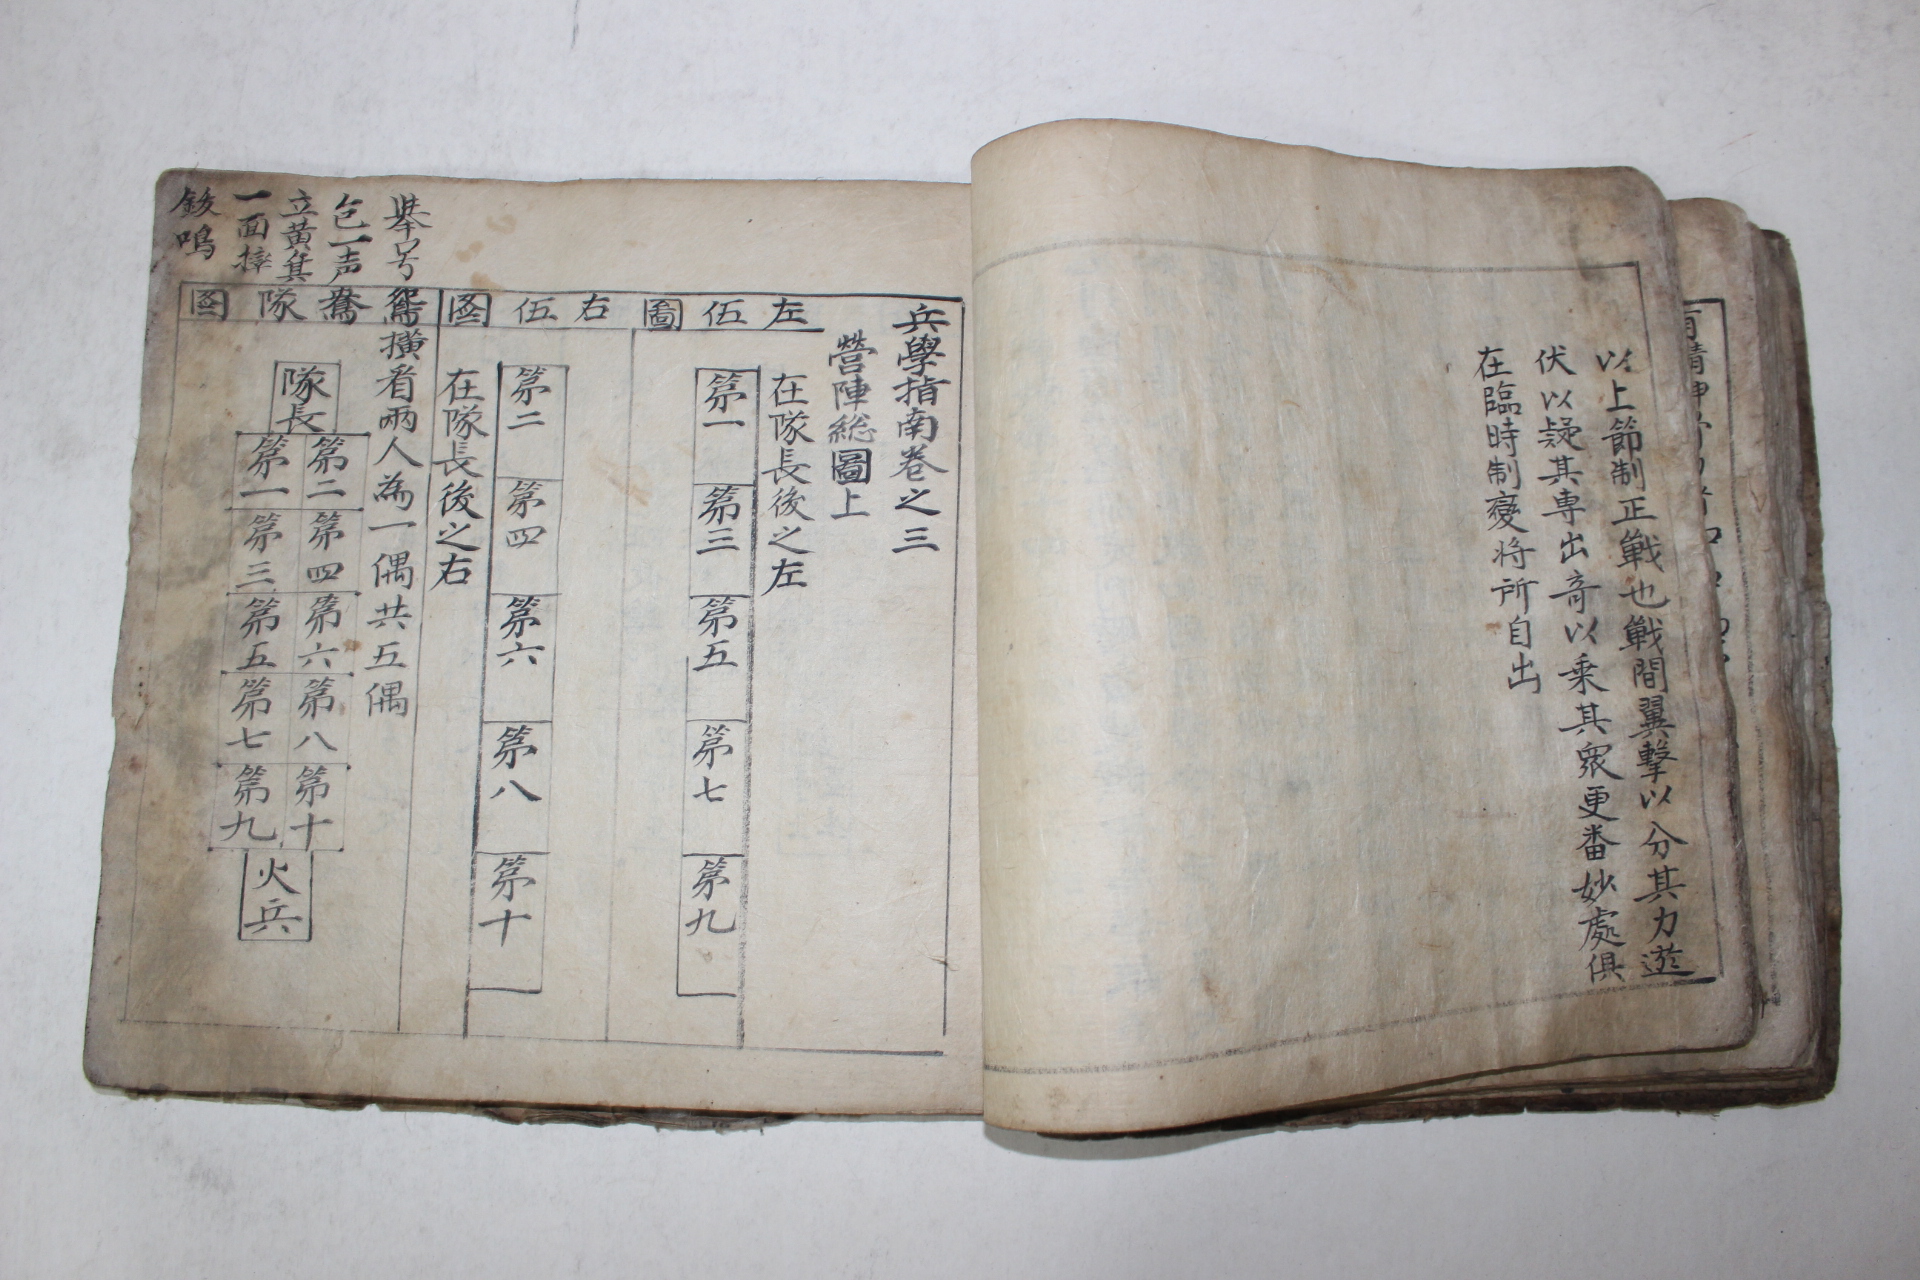 以上節制正戰也戰間翼擊以分其力遊
伏以疑其専出奇以乗其衆更畨妙處俱
在臨時制變将所自出
兵學指南卷之三
營陣総圖上
左伍圖
在隊長後之左
第一
第三
第五
第七
第九
右伍图
第二
第四
第六
第八
第十
在隊長後之右
鴛鴦隊图
擧号
包一声
立黄旗
一面摔
鈸鳴
橫看兩人為一偶共五偶
隊長
第二 第一
第四 第三
第六 第五
第八 第七
第十 第九
火兵